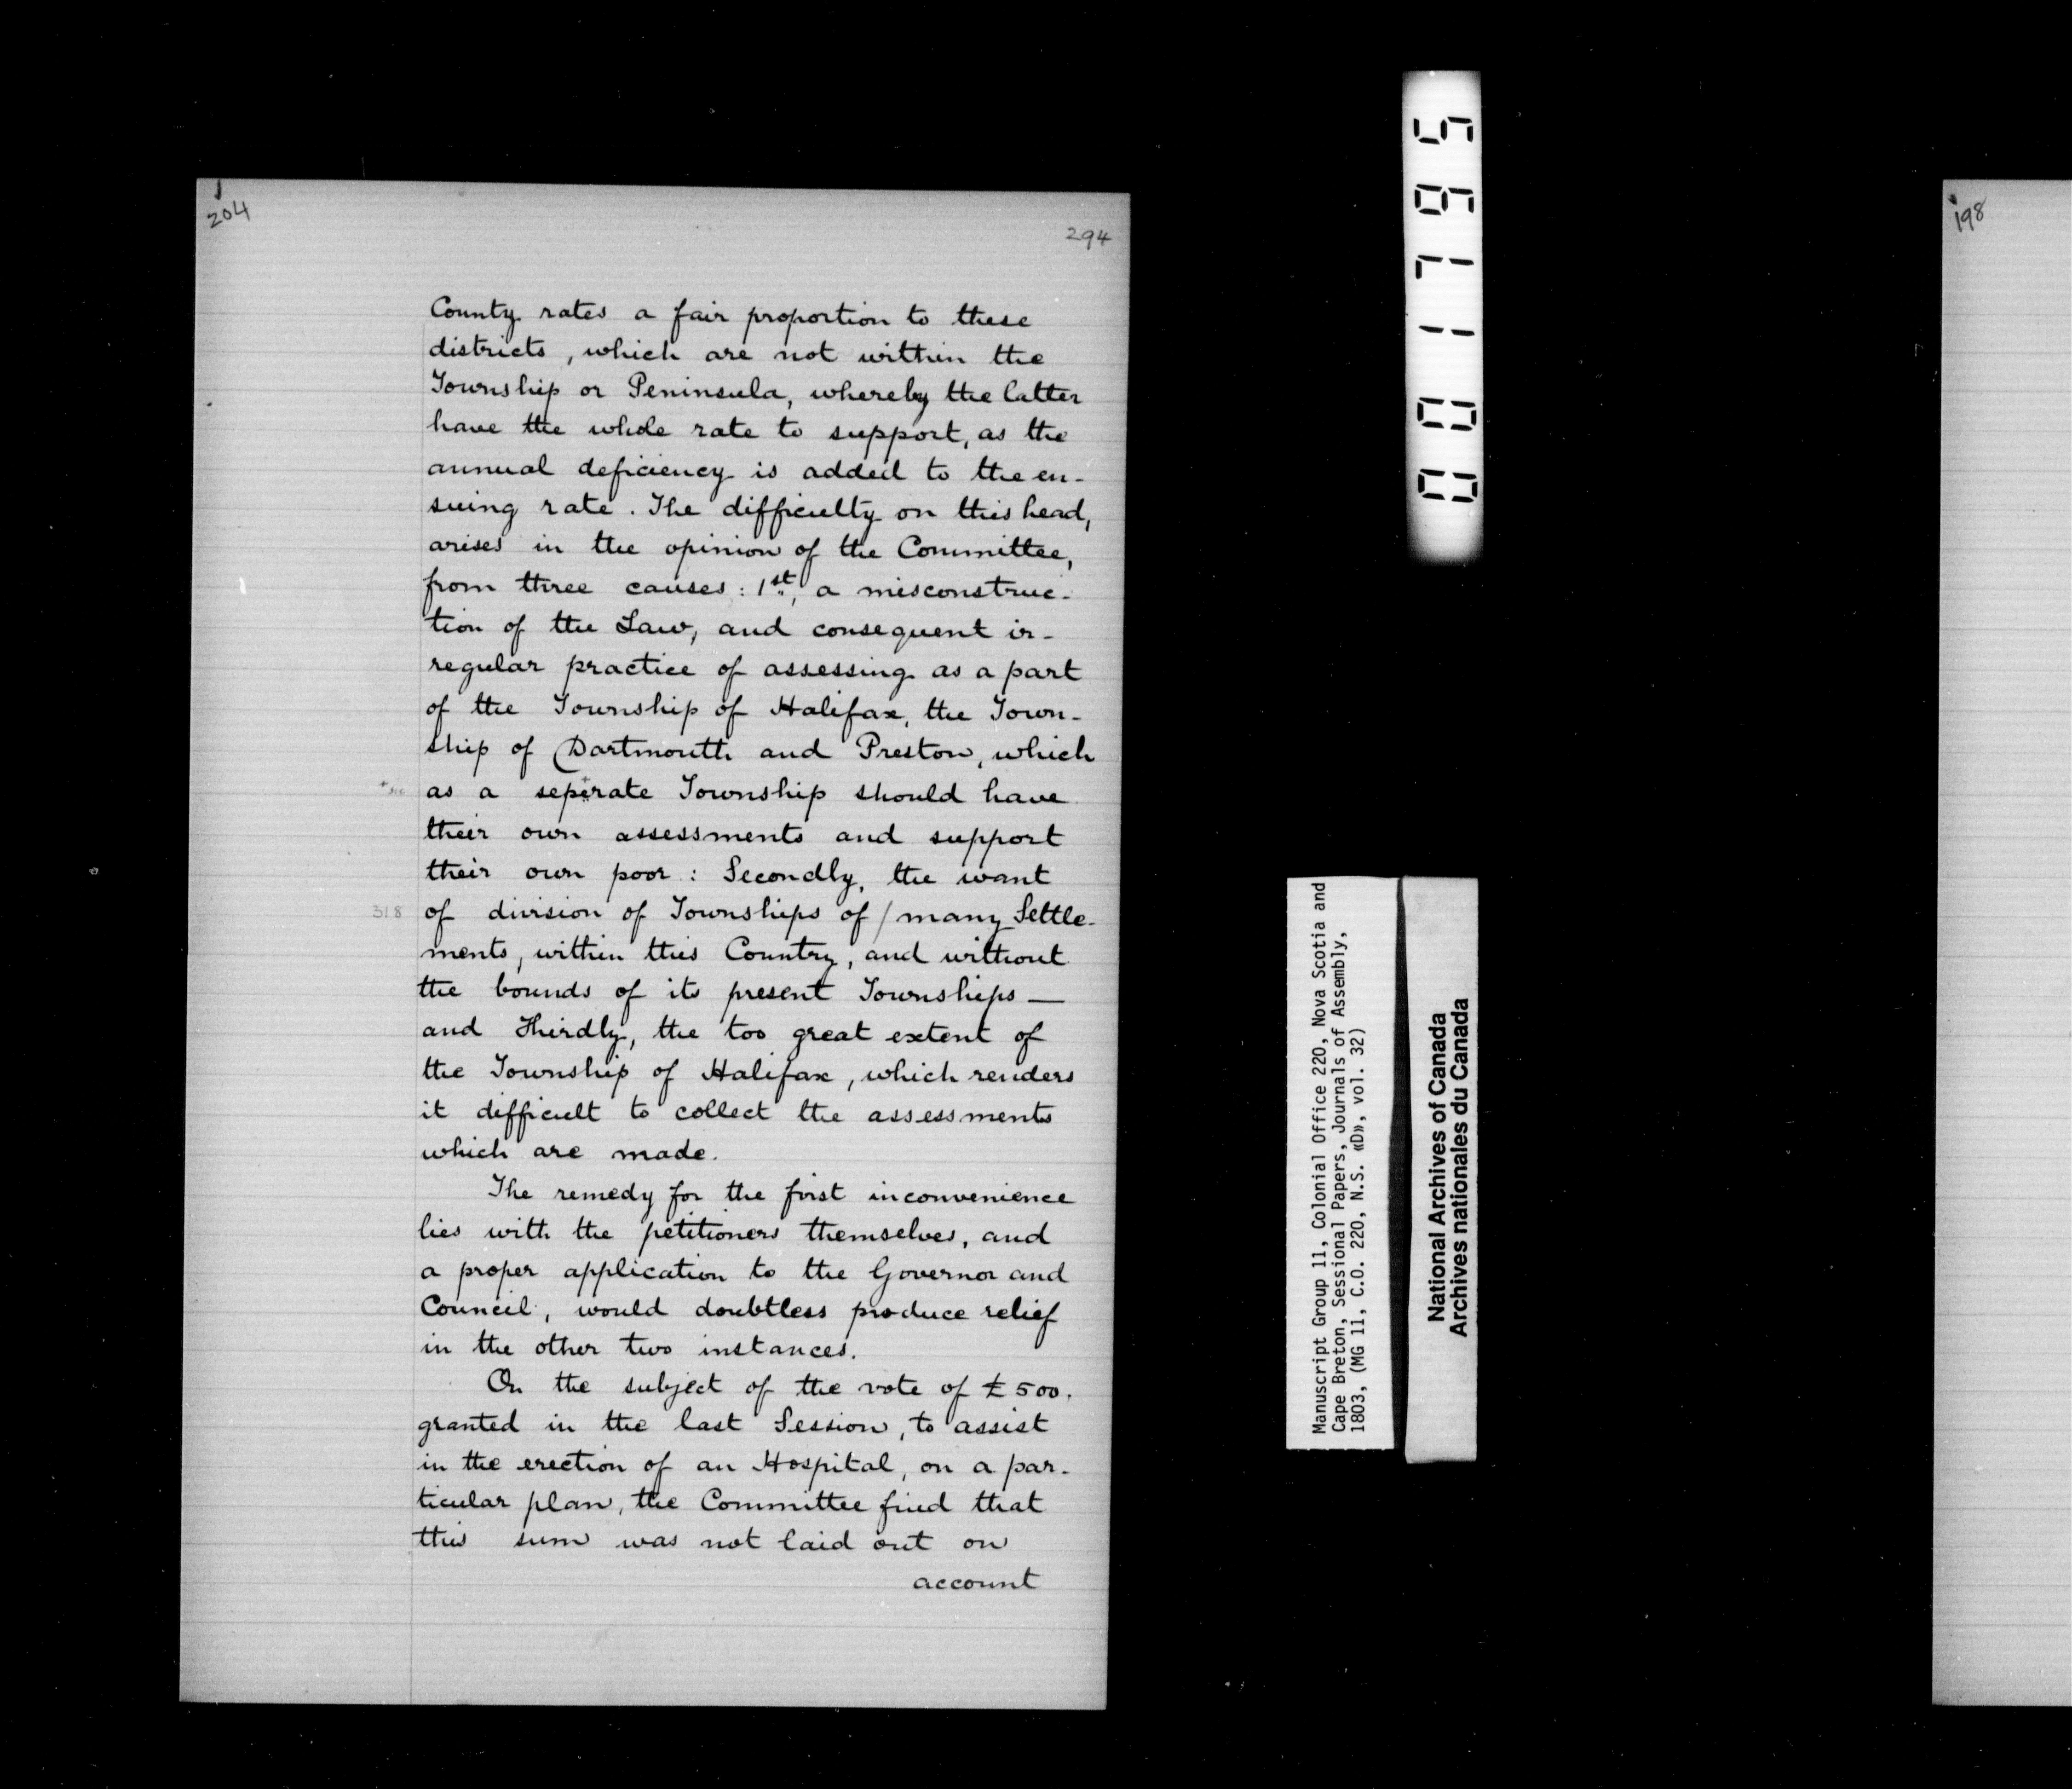 204
294
County rates a fair proportion to these
districts, which are not within the
Township or Peninsula, whereby the latter
have the whole rate to support, as the
annual deficiency is added to the en-
suing rate. The difficulty on this head,
arises in the opinion of the Committee,
from three causes: 1st, a misconstruc-
tion of the Law, and consequent ir-
regular practice of assessing as a part
of the Township of Halifax, the Town-
ship of Dartmouth and Preston, which
as a seperate Township should have
their own assessments and support
their own poor: Secondly, the want
318 of division of Townships of / many Settle-
ments, within this Country, and without
the bounds of its present Townships —
and Thirdly, the too great extent of
the Township of Halifax, which renders
it difficult to collect the assessments
which are made.
The remedy for the first inconvenience
lies with the petitioners themselves, and
a proper application to the Governor and
Council, would doubtless produce relief
in the other two instances.
On the subject of the vote of £500.
granted in the last Session, to assist
in the erection of an Hospital, on a par-
ticular plan, the Committee find that
this sum was not laid out on
account
001795
Manuscript Group 11, Colonial Office 220, Nova Scotia and
Cape Breton, Sessional Papers, Journals of Assembly,
1803, (MG 11, C.O. 220, N.S. «D», vol. 32)
National Archives of Canada
Archives nationales du Canada
198